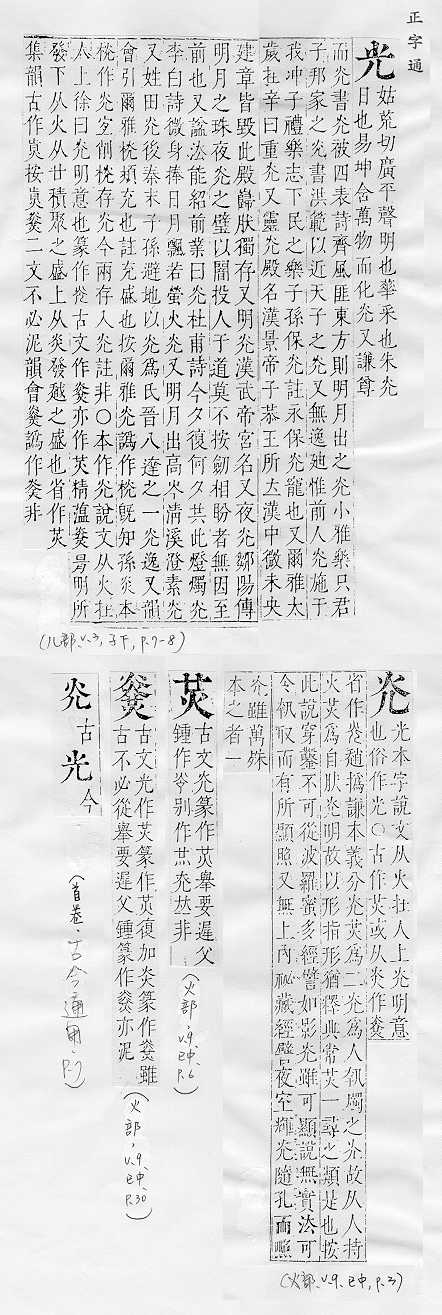 正字通
光 姑荒切廣平聲明也華采也朱灮
日也易坤含萬物而化灮又謙尊
而灮書灮被四表詩齊風匪東方則明月出之灮小雅樂只君
子邦家之灮書洪範以近天子之灮又無逸廸惟前人灮施于
我冲子禮樂志下民之樂子孫保灮註永保灮寵也又爾雅太
歲在辛曰重灮又靈灮殿名漢景帝子恭王所立漢中微未央
建章皆毀此殿巋肰獨存又明灮漢武帝宮名又夜灮鄒陽傳
明月之珠夜灮之璧以闇投人于道莫不按劒相盼者無因至
前也又諡法能紹前業曰灮杜甫詩今夕復何夕共此燈燭灮
李白詩微身捧日月飄若螢火灮又明月出高岑淸溪澄素灮
又姓田灮後秦末子孫避地以灮爲氏晉八達之一灮逸又韻
會引爾雅桄熲充也註充盛也按爾雅灮譌作桄旣知孫炎本
桄作灮宜刪桄存灮今兩存入灮註非〇本作灮說文从火在
人上徐曰灮明意也篆作灮古文作㷗亦作炗精薀㷗昜明所
發下从火从廿積聚之盛上从炎發越之盛也省作炗
集韻古作炗按炗㷗二文不必泥韻會㷗譌作㷗非
(儿部、V.3, 子下, P.7-8)
灮 光本字說文从火在人上灮明意
也俗作光〇古作炗或从炎作㷗
省作灮趙撝謙本義分灮炗爲二灮爲人執燭之灮故从人持
火炗爲自肰灮明故以形指形猶釋典常炗一尋之類是也按
此說穿鑿不可從波羅蜜多經譬如影灮雖可顯說無實法可
令執取而有所顯照又無上內祕藏經壁夜空輝灮隨孔而照
灮雖萬殊
本之者一
(火部、V.9、巳中、P.3)
炗 古文灮篆作炗舉要遲父
鍾作灮別作灮灮炗非
(火部、V.9、巳中、P.6)
㷗 古文光作炗篆作炗復加炎篆作㷗雖
古不必從舉要遲父鍾篆作㷗亦泥
(火部、V.9、巳中、P.30)
灮古光今
(首卷、古今通用、P.7)